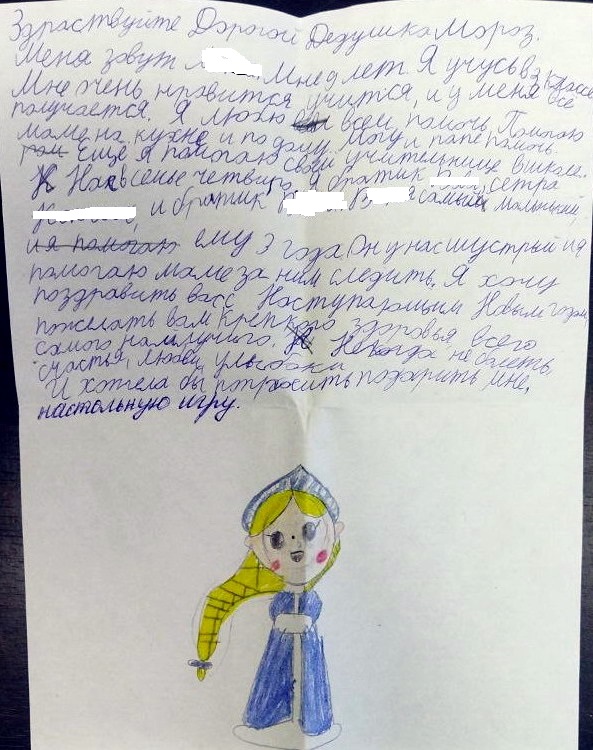 Здраствуйте Дорогой Дедушка Мороз.
Меня зовут Мне 9 лет. Я учусь в 3 классе
Мне очень нравится учится, и у меня все
получается. Я люблю всем помочь. Помогаю
маме на кухне и по дому. Могу и папе помочь.
Еще Я помогаю своей учительнице в школе.
Нас в семье четверо, я братик сестра
и братик самый маленький,
и я помогаю ему 3 года Он у нас шустрый и я
помогаю маме за ним следить. Я хочу
поздравить вас с Наступающим Новым годом,
пожелать вам крепкого здоровья, всего
самого наилучшего. Некогда не болеть,
счастья, любви, улыбок
И хотела бы попросить подарить мне,
настольную игру.